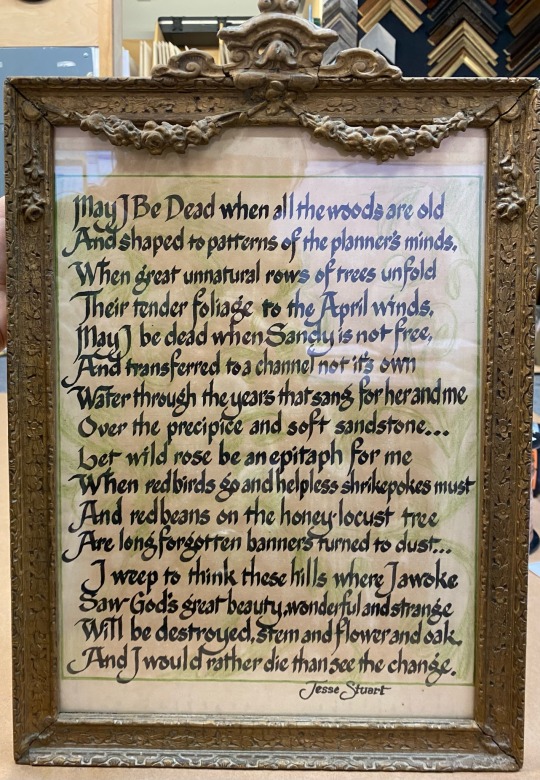 May I Be Dead when all the woods are old
And shaped to patterns of the planner's minds,
When great unnatural rows of trees unfold
Their tender foliage to the April winds,
May I be dead when Sandy is not free,
And transferred to a channel not it's own
Water through the years that sang for her and me
Over the precipice and soft sandstone...
Let wild rose be an epitaph for me
When redbirds go and helpless shrikepokes must
And red beans on the honey-locust tree
Are long forgotten banners turned to dust...
I weep to think these hills where I awoke
Saw God's great beauty, wonderful and strange
Will be destroyed, stem and flower and oak,
And I would rather die than see the change.
Jesse Stuart